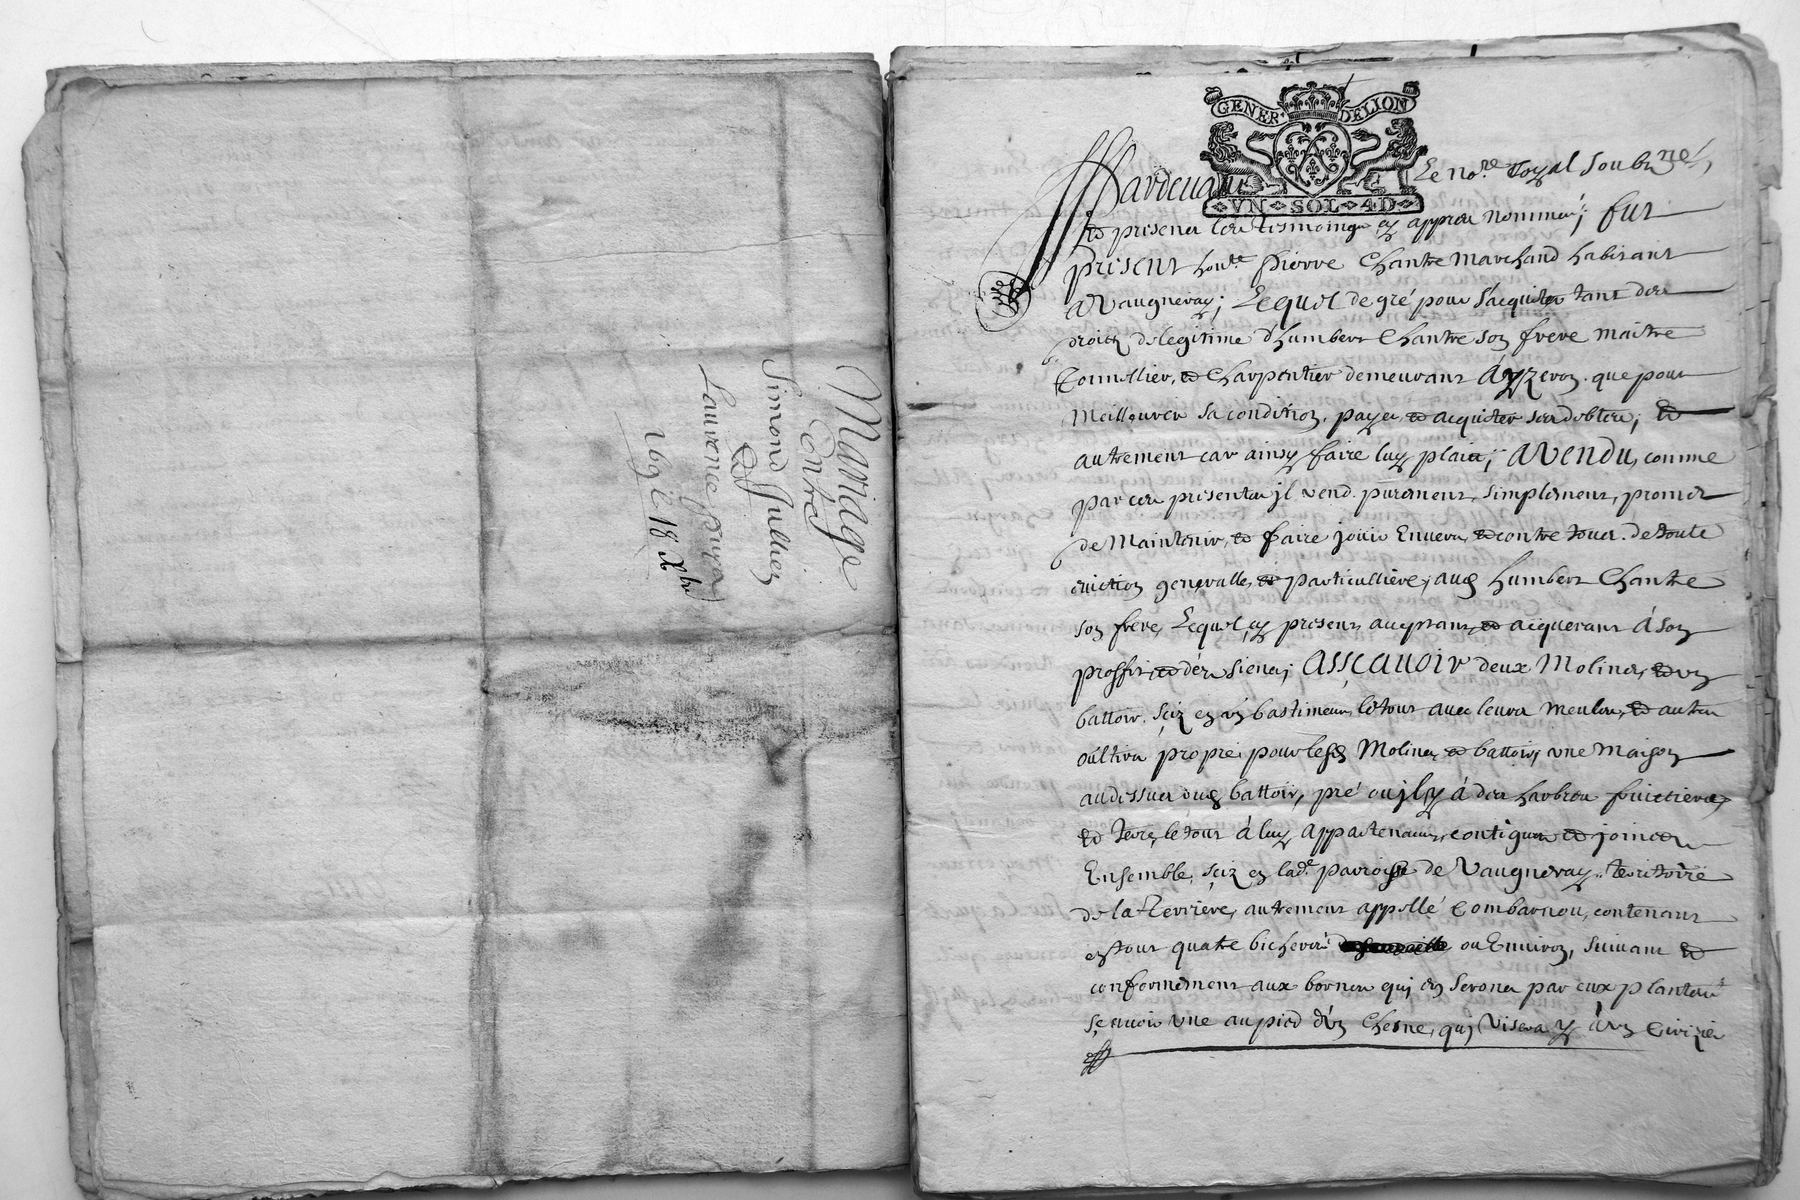 Mariage
Entre
Simond Jullien
&
Laurence
169 18 Xbre
GENER DELION
VN SOL 4 D
Pardeuant Le nore Royal Soubzne,
et presens les tesmoings en appres nommes; fut
present honble pierre Chantre Marchand habitant
a Vaugneray; Lequel de gré pour s'acquister tant des
droits de legitime d'humbert Chantre son frere maitre
Tonnellier, et Charpentier demeurant á yzeron. que pour
Meillourer sa condition. payer et acquister ses debtes; et
autrement car ainsy faire luy plait; A VENDU, comme
par ces presentes jl vend. purement, simplement, promet
de Maintenir, et faire jouir Envers, et contre tous. de toute
euiction generalle, et particulliere; aud humbert Chantre
son frere, Lequel cy present acceptant, et acquerant á son
proffit, et des siens; ASSCAUOIR deux Molins, et un
battoir. Seiz en un bastiment, le tout auec leurs meules, et autres
oultils propre pour lesd Molins, et battoir, vne Maison
audessus dud battoir, pré ou jl y á des harbres fruictiers,
et Terre, le tout á luy appartenant, contigus et joincts
Ensemble, seiz en lade. parroisse de Vaugneray. territoire
de la Reviere, autrement appellé Combarnou, contenant
en tout quatre bicherés ou Enuiron, Suiuant et
conformement aux bornes qui en Seront par eux plantés
Scauoir vne au pied d'un Chesne, qui Visera y á un Cirizier